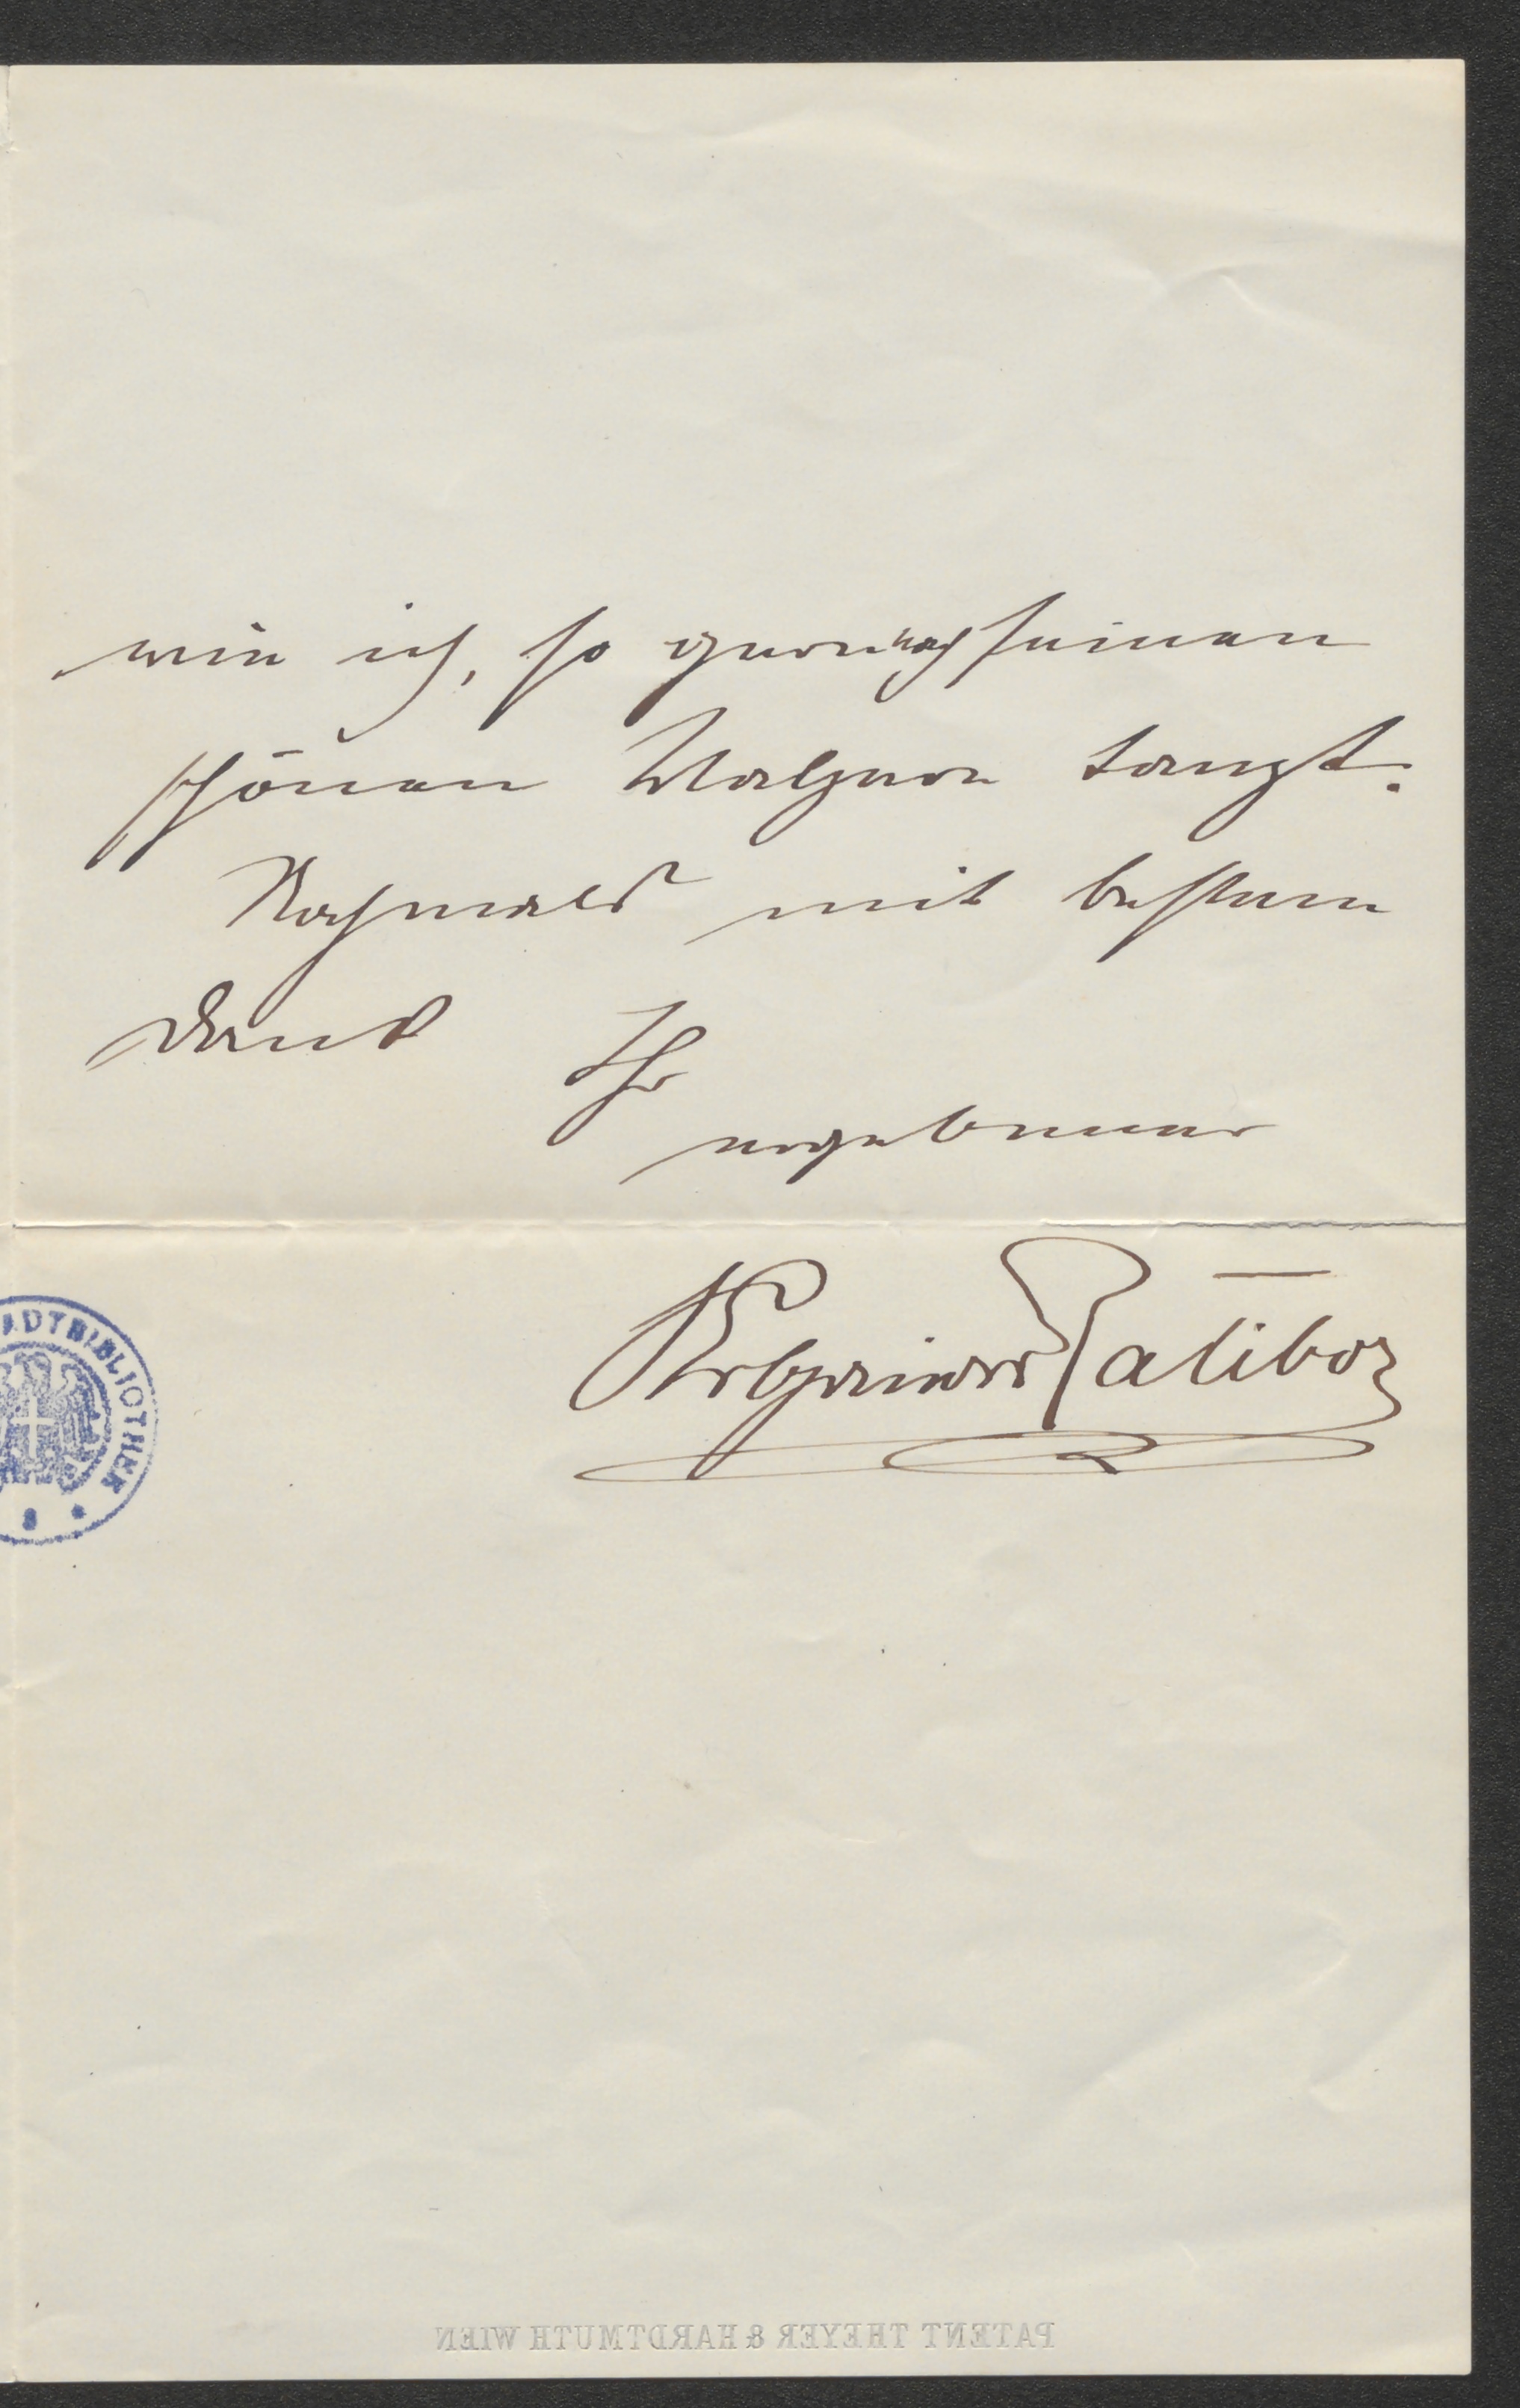 wie ich, so gern nach seinen
schönen Walzern tanzt.
Nochmals mit bestem
Dank Ihr
ergebener
Ratibor
ADTBIBLIOTHEK
PATENT THEYER & HARDTMUTH WIEN